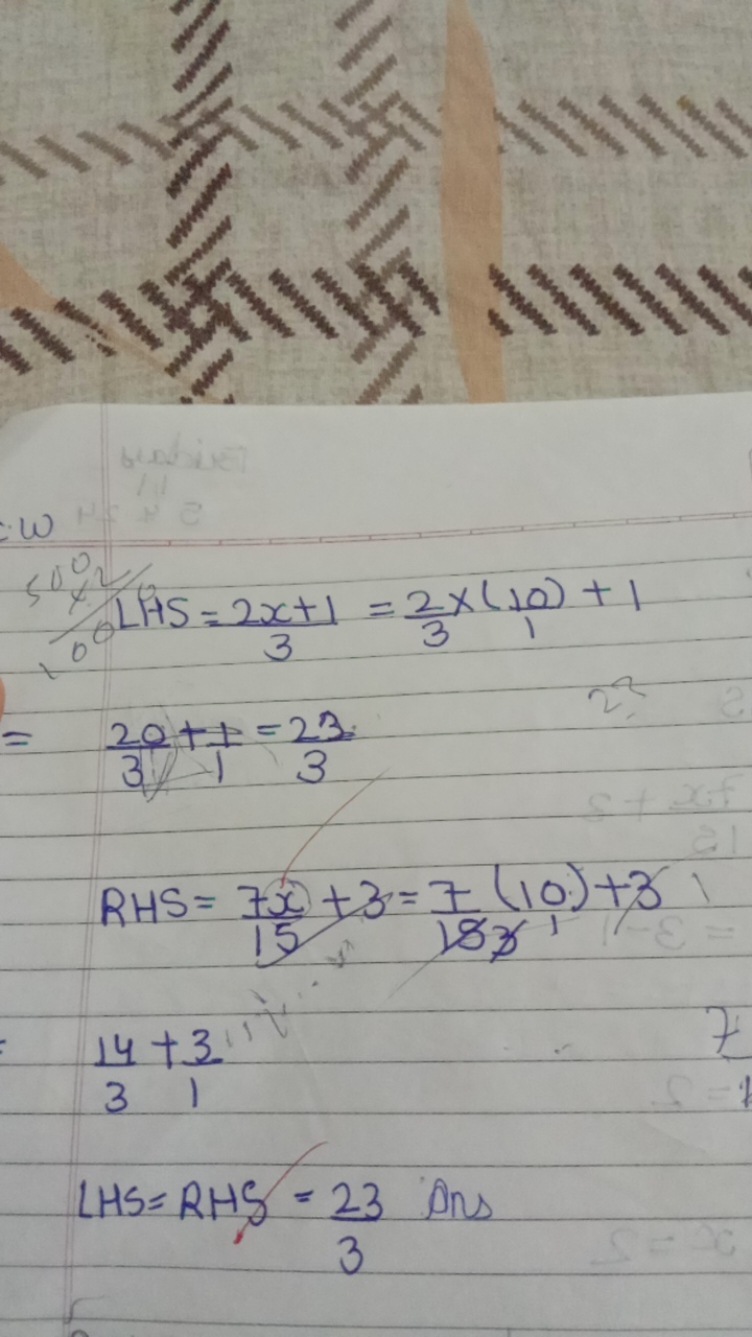 C.W
500
×2
100
LHS = 2x+1/3 = 2/3 × (10)/1 + 1
= 20/3 + 1/1 = 23/3
RHS = 7x/15 + 3 = 7/153 (10)/1 + 3 1
= 14/3 + 3/1
7
LHS = RHS = 23/3 Ans